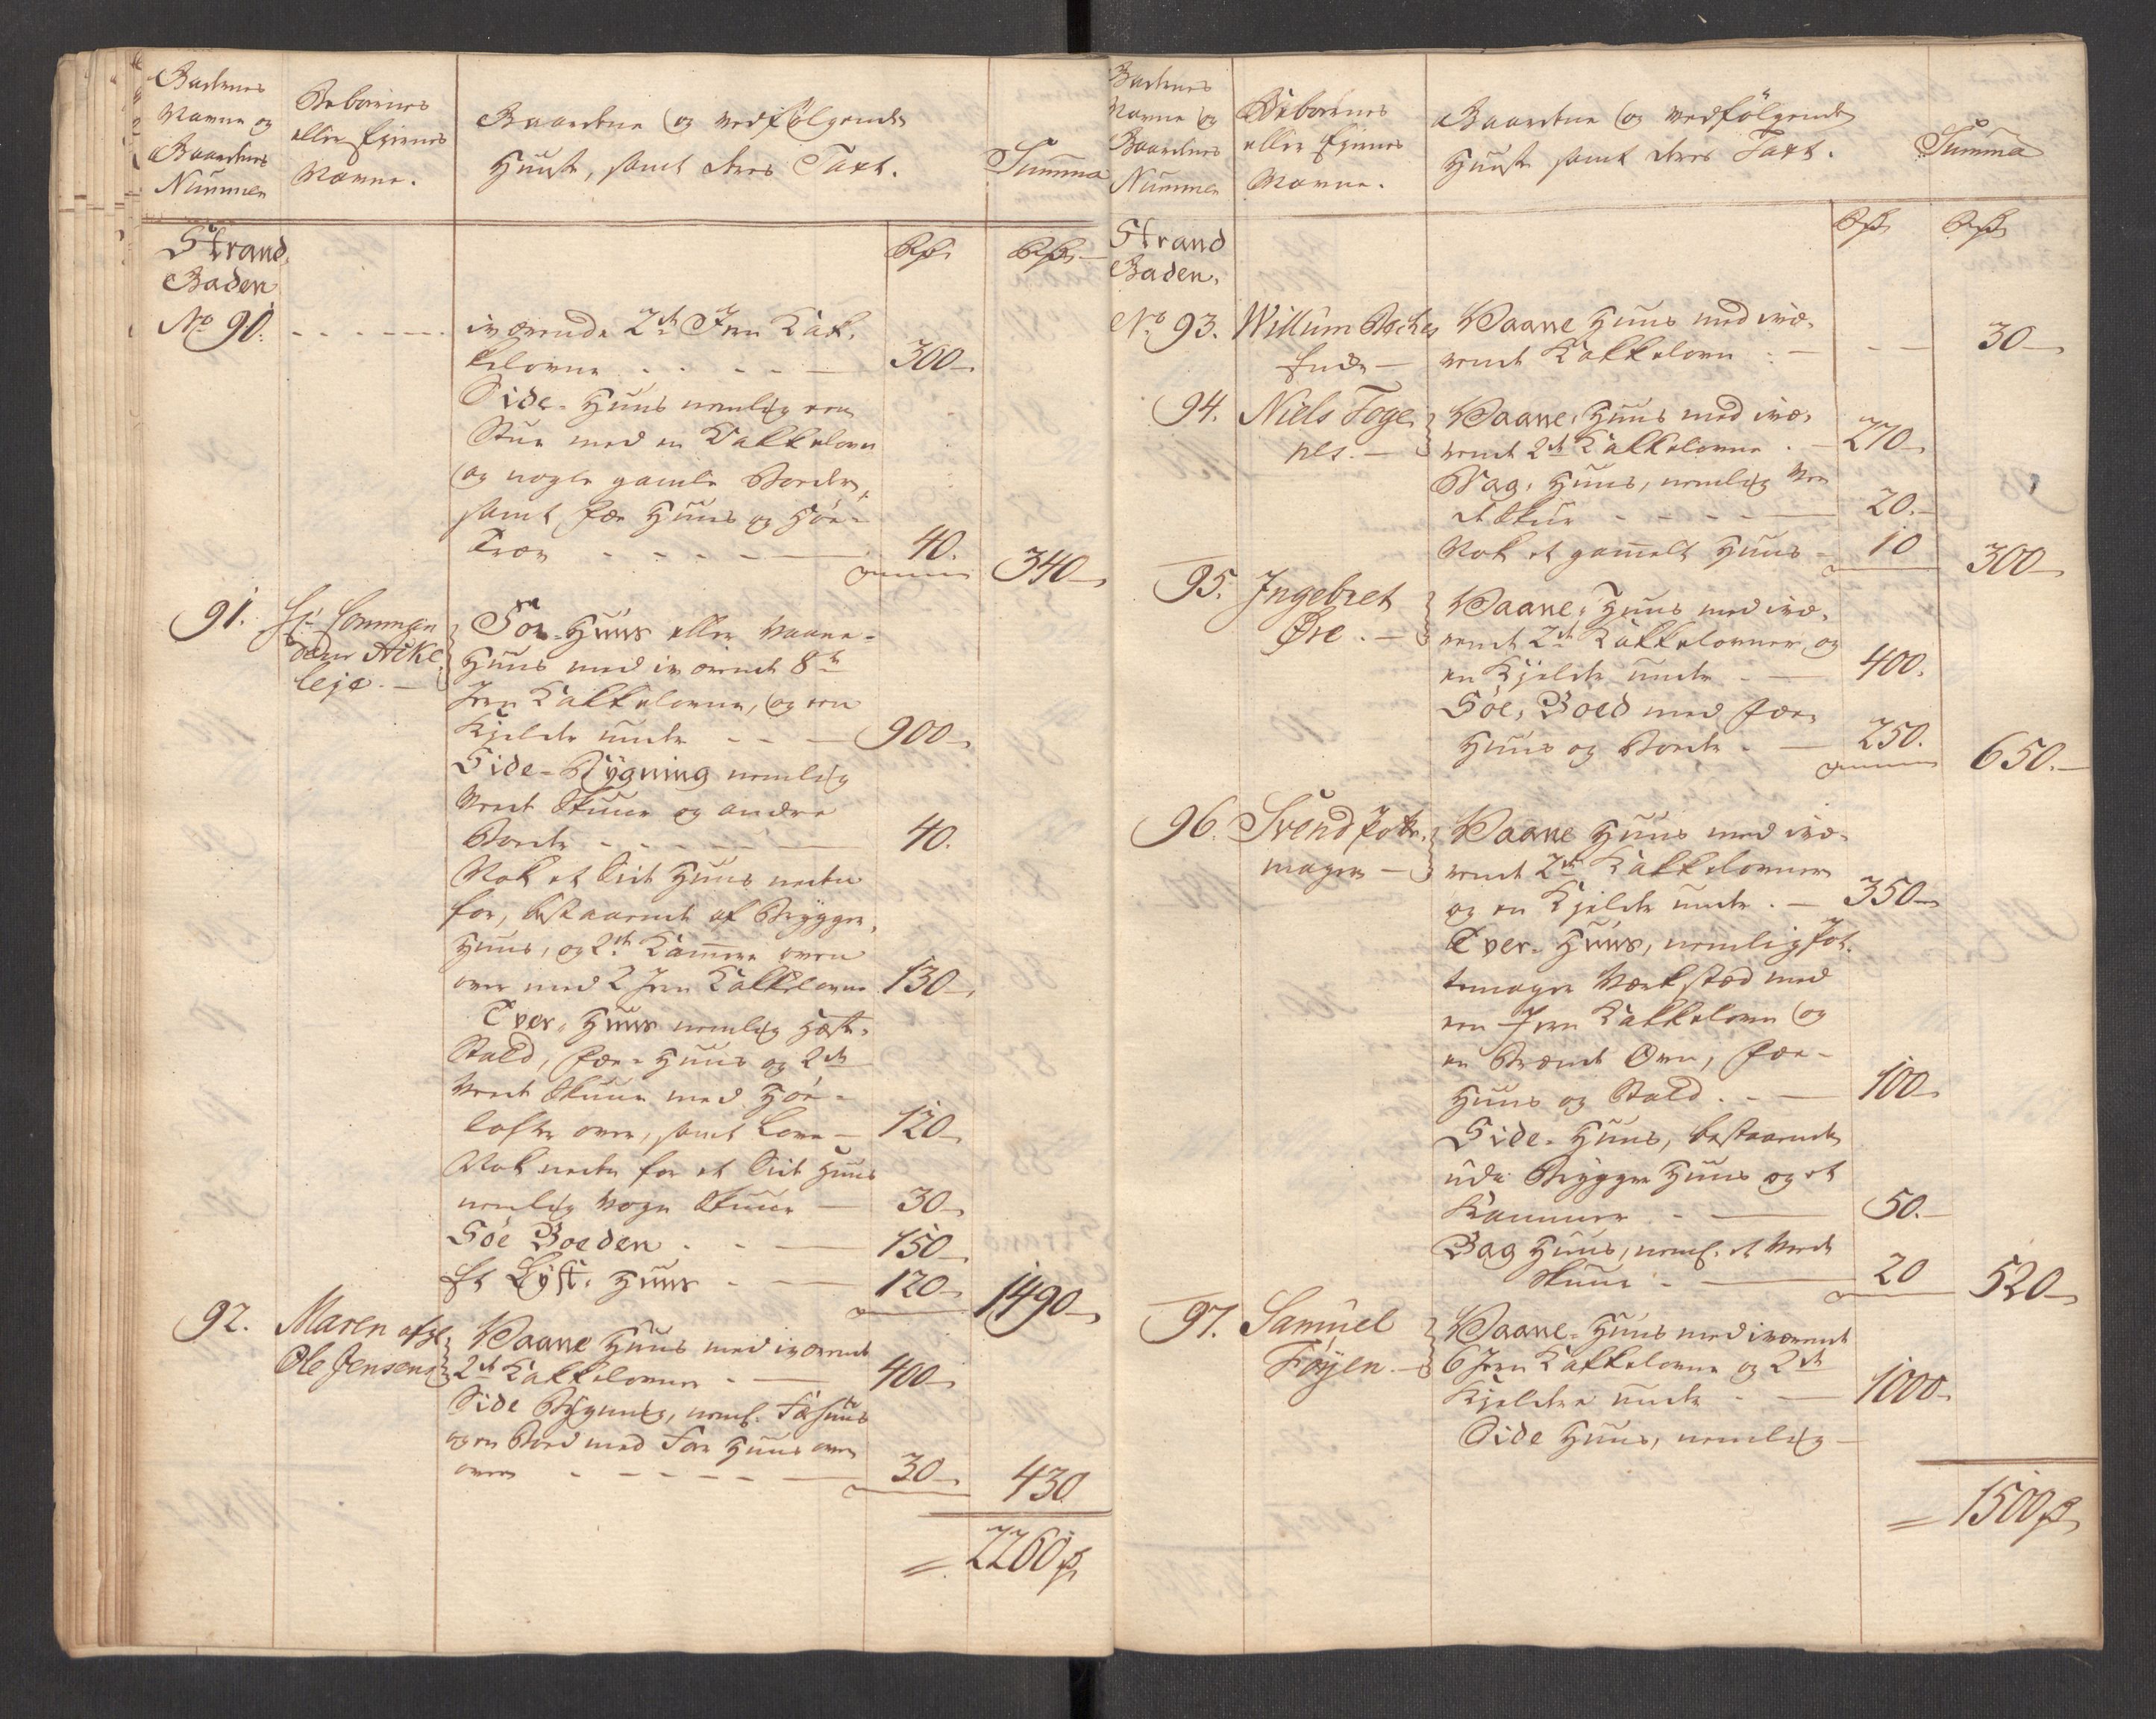 Gadernes
Navne og
Gaardenes
Nummer
Beboernes
eller Ejernes
Navne.
Gaardene og vedfølgende
Huuse, samt deres Taxt.
Summa
Strand
Gaden
Rdr
Rdr
No 90.
iværende 2de Jern Kak-
kelovne
300
Side-Huus nemlig een
Stue med en Kakkelovn
og nogle gamle Boeder,
samt Fæe Huus og Høe-
40.
340
91.
Hr.
Acke
leje.
For-Huus eller Vaane-
Huus med iværende 8te
Jern Kakkelovne, og een
Kjelder under
900
Side-Bygning nemlig
Veed Skuur og andre
Boeder
40.
Nok et Lidt Huus neden
for, bestaaende af Brygger-
Huus, og 2de Kamre oven
over med 2 Jern Kakkelovne
130
Tver-Huus nemlig Heste-
Stald, Fæe-Huus og 2de
Veed Skuur med Høe-
lofter over, samt Love
120
Nok neden for et Lidt Huus
nemlig Vogn Skuur
30
Søe Boeden
150
Et Lyst-Huus
120
1490
92.
Maren afg:
Ole Jensens
Vaane Huus med iværende
2de Kakkelovne
400
Side Bygning, neml. Fæhuus
og en Boed med Foer Huus oven
over
30
430
2260
Gadernes
Navne og
Gaardenes
Nummer
Beboernes
eller Ejernes
Navne.
Gaardene og vedfølgende
Huuse samt deres Taxt.
Summa
Strand
Gaden.
Rdr
Rdr
No 93.
Willum
Vaane Huus med ivæ-
rende Kakkelovn
30
94.
Niels Foge
nes.
Vaane-Huus med ivæ-
rende 2de Kakkelovne
270
Bag-Huus, nemlig Vee
dskuur
20.
Nok et gamelt Huus
10
300
95.
Ingebret
Øre.
Vaane-Huus med ivæ-
rende 2de Kakkelovner, og
en Kjelder under
400.
Søe-Boed med Fæe-
Huus og Boeder
250.
650.
96.
Svend Potte-
mager
Vaane Huus med ivæ-
rende 2de Kakkelovner
og en Kjelder under.
350
Tver-Huus, nemlig Pot-
temager Værksted med
een Jern Kakkelovn og
en Brænde Ovn, Fæe-
Huus og Stald.
100
Side-Huus, bestaaende
udi Brygger Huus og et
Kammer
50.
Bag Huus, neml. et Veede
skuur
20
520
97.
Samuel
Frøyen.
Vaane-Huus med iværende
6 Jern Kakkelovne og 2de
Kjeldere under
1000
Side Huus, nemlig
1500